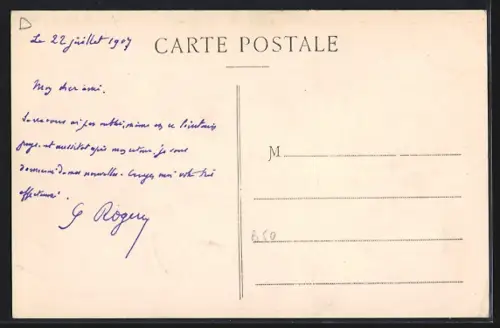 D
Le 22 juillet 1907
CARTE POSTALE
Mon cher ami.
Je ne vous ai pas oublié, même en ce lointain
pays et aussitôt après mon retour, je vous
donnerai de mes nouvelles. Croyez moi votre très
affectueux
G Rogery
M
B50